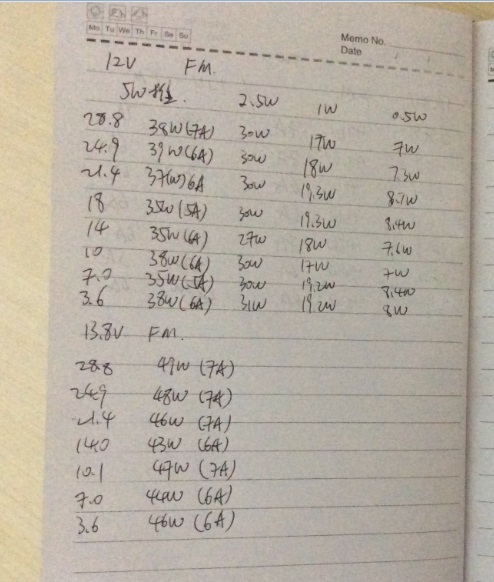 Mo Tu We Th Fr Sa Su
Memo No.
Date
12V FM.
5W 2.5W 1W 0.5W
28.8 38W (7A) 30W 17W 7W
24.9 39W (6A) 30W 18W 7.3W
21.4 37(W) 6A 30W 19.3W 8.1W
18 35W (5A) 30W 19.3W 8.4W
14 35W (6A) 27W 18W 7.6W
10 38W (6A) 30W 17W 7W
7.0 35W (5A) 30W 19.2W 8.4W
3.6 38W (6A) 31W 19.2W 8W
13.8V FM.
28.8 49W (7A)
24.9 48W (7A)
21.4 46W (7A)
14.0 43W (6A)
10.1 47W (7A)
7.0 44W (6A)
3.6 46W (6A)